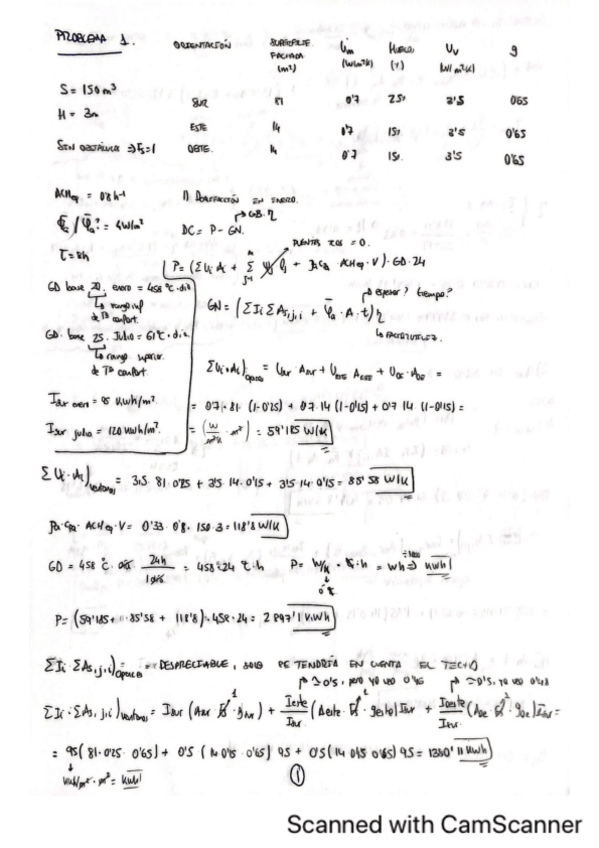 PROBLEMA 1.
ORIENTACIÓN SUPERFICIE FACHADA (m²) Um (W/m²K) HUECO (%) Uv (W/m²K) g
S = 150 m²
H = 3m
SIN OBSTÁCULOS ⇒ Fs=1
SUR 81 0'7 25% 3'5 0'65
ESTE 14 0'7 15% 3'5 0'65
OESTE 14 0'7 15% 3'5 0'65
ACHeq = 0'8 h⁻¹
= 4W/m²
t = 8h
GD base 20, enero = 458 °C·día
rango inf de Tª confort.
GD base 25. Julio = 61 °C·día
rango superior de Tª confort.
Isur enero = 95 KWh/m².
Isur julio = 120 KWh/m².
EN ENERO.
DC = P - GN.
PUENTES = 0.
P = (ΣUi·Ai + Σ Ψj lj + ρa·cpa · ACHeq · V) · GD · 24
GN = (ΣIi ΣAs,j,i + φa · A · t) η
tiempo?
Σ(Ui·Ai)opacos = Usur Asur + Ueste Aeste + Uoe · Aoe =
= 0'7 · 81 · (1-0'25) + 0'7 · 14 (1-0'15) + 0'7 · 14 (1-0'15) =
= (W/m²K · m²) = 59'185 W/K
ΣUi·Ai)ventanas = 3'5 · 81 · 0'25 + 3'5 · 14 · 0'15 + 3'5 · 14 · 0'15 = 85'58 W/K
ρa·cpa · ACHeq · V = 0'33 · 0'8 · 150 · 3 = 118'8 W/K
GD = 458 °C · días · 24h/1día = 458·24 °C·h
P = W/K · °C·h = Wh ⇒ KWh
P = (59'185 + 85'58 + 118'8) · 458 · 24 = 2897'1 KWh
ΣIi · ΣAs,j,i)opacos = DESPRECIABLE, SOLO SE TENDRÍA EN CUENTA EL TECHO
≃ 0'5, pero yo veo 0'46
≃ 0'5, yo veo 0'48
ΣIi · ΣAs,j,i)ventanas = Isur (Asur · Fs · gsur) + Ieste/Isur (Aeste · Fs · geste) Isur + Ioeste/Isur (Aoe · Fs · goe) Isur =
= 95 (81 · 0'25 · 0'65) + 0'5 (14 · 0'15 · 0'65) 95 + 0'5 (14 · 0'15 · 0'65) 95 = 1380'11 KWh
KWh/m² · m² = KWh
1
Scanned with CamScanner